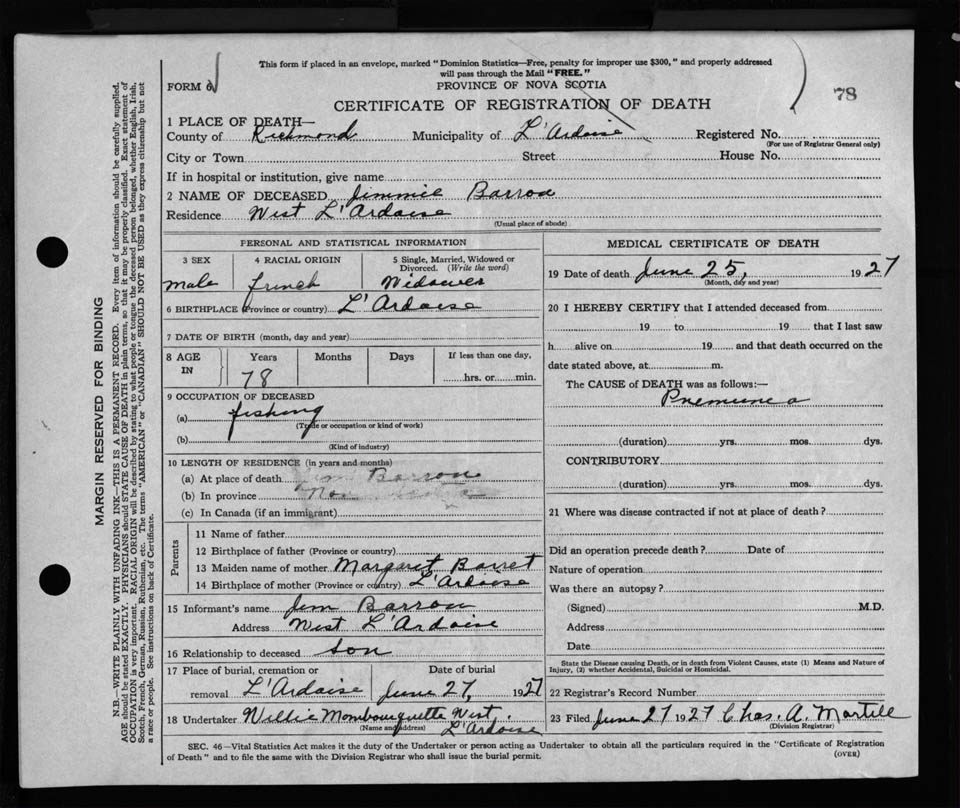 This form if placed in an envelope, marked "Dominion Statistics—Free, penalty for improper use $300," and properly addressed
will pass through the Mail "FREE."
FORM 6
PROVINCE OF NOVA SCOTIA
78
CERTIFICATE OF REGISTRATION OF DEATH
1 PLACE OF DEATH—
County of Richmond Municipality of L'Ardoise Registered No.
(For use of Registrar General only)
City or Town Street House No.
If in hospital or institution, give name
2 NAME OF DECEASED Jimmie Barron
Residence West L'Ardoise
(Usual place of abode)
PERSONAL AND STATISTICAL INFORMATION
3 SEX 4 RACIAL ORIGIN 5 Single, Married, Widowed or Divorced. (Write the word)
male french Widower
6 BIRTHPLACE (Province or country) L'Ardoise
7 DATE OF BIRTH (month, day and year)
8 AGE IN Years Months Days If less than one day,
78 hrs. or min.
9 OCCUPATION OF DECEASED
(a) fishing
(Trade or occupation or kind of work)
(b)
(Kind of industry)
10 LENGTH OF RESIDENCE (in years and months)
(a) At place of death Jim Barron
(b) In province
(c) In Canada (if an immigrant)
Parents
11 Name of father
12 Birthplace of father (Province or country)
13 Maiden name of mother Margaret Barret
14 Birthplace of mother (Province or country) L'Ardoise
15 Informant's name Jim Barron
Address West L'Ardoise
16 Relationship to deceased son
17 Place of burial, cremation or removal L'Ardoise Date of burial June 27, 1927
18 Undertaker Willie Mombourquette West L'Ardoise
(Name and address)
MEDICAL CERTIFICATE OF DEATH
19 Date of death June 25, 1927
(Month, day and year)
20 I HEREBY CERTIFY that I attended deceased from
19 to 19 that I last saw
h alive on 19 and that death occurred on the
date stated above, at m.
The CAUSE of DEATH was as follows:—
Pnemunea
(duration) yrs. mos. dys.
CONTRIBUTORY
(duration) yrs. mos. dys.
21 Where was disease contracted if not at place of death?
Did an operation precede death? Date of
Nature of operation
Was there an autopsy?
(Signed) M.D.
Address
Date
State the Disease causing Death, or in death from Violent Causes, state (1) Means and Nature of
Injury, (2) whether Accidental, Suicidal or Homicidal.
22 Registrar's Record Number
23 Filed June 27 1927 Chas. A. Martell
(Division Registrar)
SEC. 46—Vital Statistics Act makes it the duty of the Undertaker or person acting as Undertaker to obtain all the particulars required in the "Certificate of Registration
of Death" and to file the same with the Division Registrar who shall issue the burial permit.
(OVER)
MARGIN RESERVED FOR BINDING
N.B.—WRITE PLAINLY WITH UNFADING INK—THIS IS A PERMANENT RECORD. Every item of information should be carefully supplied.
AGE should be stated EXACTLY. PHYSICIANS should STATE CAUSE OF DEATH in plain terms, so that it may be properly classified. Exact statement of
OCCUPATION is very important. RACIAL ORIGIN will be described by stating to what people or tongue the deceased person belonged, whether English, Irish,
Scotch, French, German, Russian, Ruthenian, etc. The terms "AMERICAN" or "CANADIAN" SHOULD NOT BE USED as they express citizenship but not
a race or people. See instructions on back of Certificate.